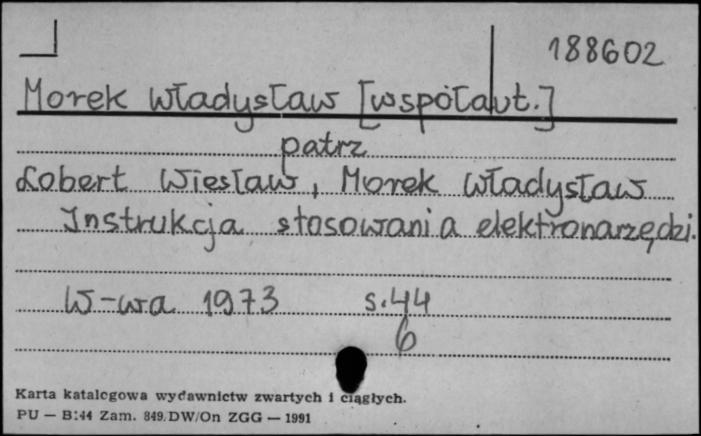 188602
Morek Władysław [współaut.]
patrz
Lobert Wiesław, Morek Władysław
Instrukcja stosowania elektronarzędzi.
W-wa 1973 s.44
6
Karta katalogowa wydawnictw zwartych i ciągłych.
PU — B:44 Zam. 849.DW/On ZGG — 1991